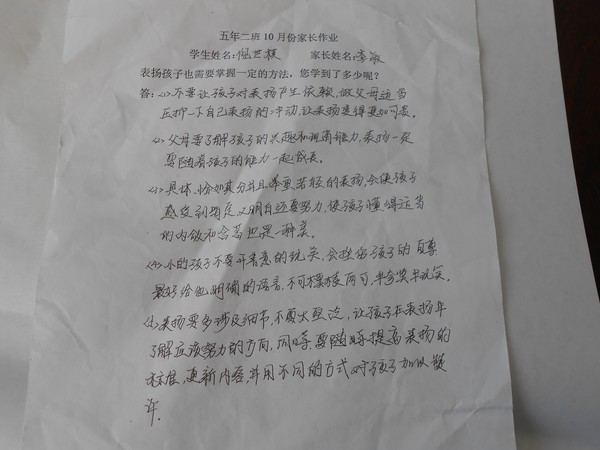 五年二班10月份家长作业
学生姓名: 家长姓名:李敏
表扬孩子也需要掌握一定的方法，您学到了多少呢？
答：(1)不要让孩子对表扬产生依赖，做父母适当
压抑一下自己表扬的冲动，让表扬变得更加可贵。
(2)父母要了解孩子的兴趣和智商能力，表扬一定
要随着孩子的能力一起成长。
(3)具体、恰如其分并且举重若轻的表扬，会使孩子
感受到肯定又明白还要努力，使孩子懂得适当
的内敛和含蓄也是一种美。
(4)小的孩子不要开善意的玩笑，会挫伤孩子的自尊
最好给他明确的语言，不可模棱两可，半夸奖半玩笑。
(5)表扬要多涉及细节，不要太照边，让孩子在表扬中
了解应该努力的方向，同时，要随时提高表扬的
标准，更新内容，并用不同的方式对孩子加以赞
许.